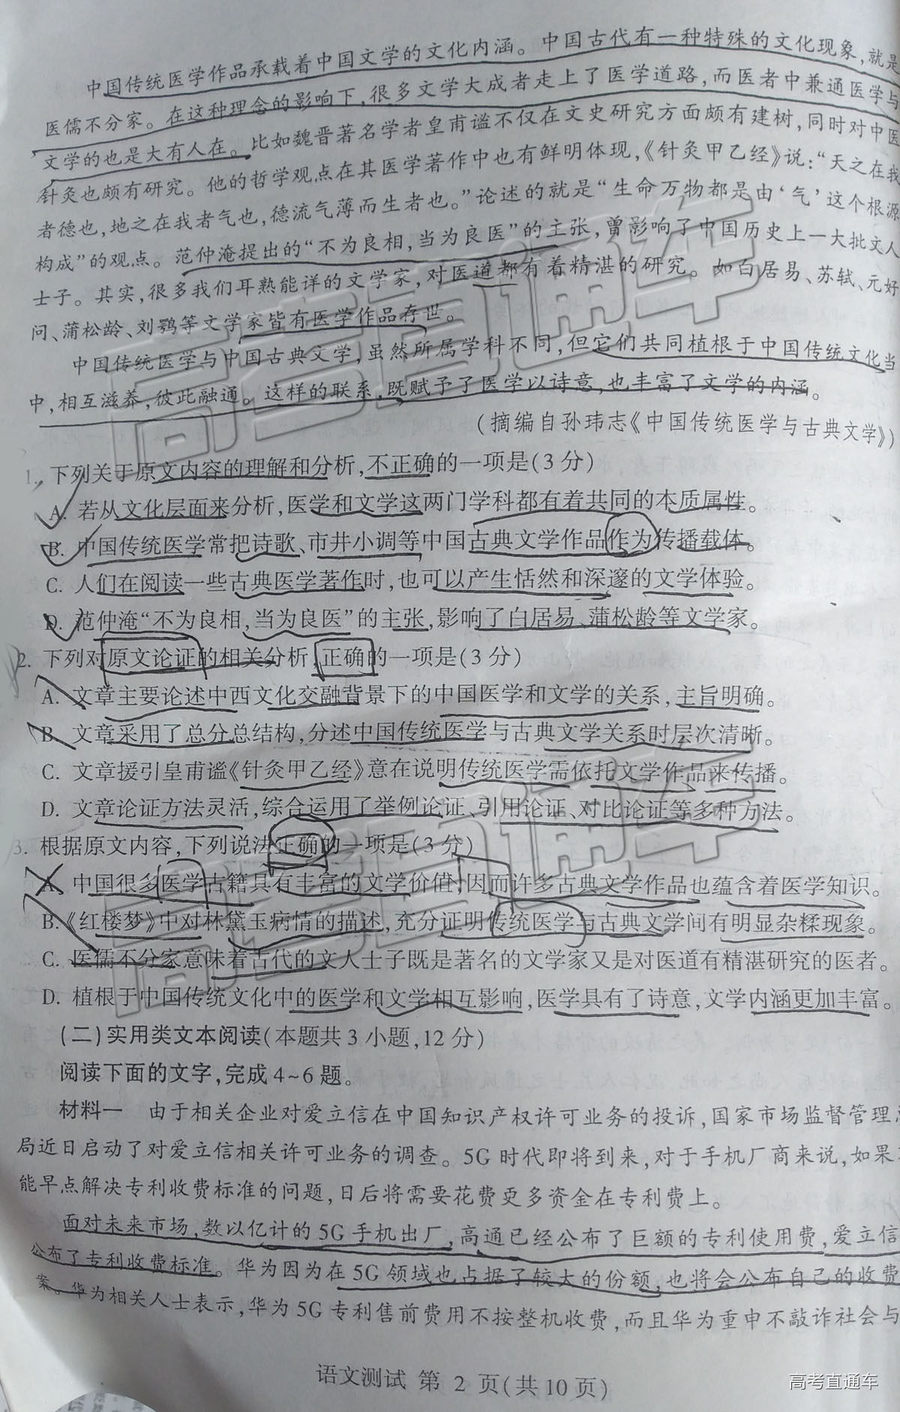 中国传统医学作品承载着中国文学的文化内涵。中国古代有一种特殊的文化现象,就是
医儒不分家。在这种理念的影响下,很多文学大成者走上了医学道路,而医者中兼通医学与
文学的也是大有人在。比如魏晋著名学者皇甫谧不仅在文史研究方面颇有建树,同时对中医
针灸也颇有研究。他的哲学观点在其医学著作中也有鲜明体现,《针灸甲乙经》说:“天之在我
者德也,地之在我者气也,德流气薄而生者也。”论述的就是“生命万物都是由‘气’这个根源
构成”的观点。范仲淹提出的“不为良相,当为良医”的主张,曾影响了中国历史上一大批文人
士子。其实,很多我们耳熟能详的文学家,对医道都有着精湛的研究。如白居易、苏轼、元好
问、蒲松龄、刘鹗等文学家皆有医学作品存世。
中国传统医学与中国古典文学,虽然所属学科不同,但它们共同植根于中国传统文化当
中,相互滋养,彼此融通。这样的联系,既赋予了医学以诗意,也丰富了文学的内涵。
(摘编自孙玮志《中国传统医学与古典文学》)
1. 下列关于原文内容的理解和分析,不正确的一项是(3分)
A. 若从文化层面来分析,医学和文学这两门学科都有着共同的本质属性。
B. 中国传统医学常把诗歌、市井小调等中国古典文学作品作为传播载体。
C. 人们在阅读一些古典医学著作时,也可以产生恬然和深邃的文学体验。
D. 范仲淹“不为良相,当为良医”的主张,影响了白居易、蒲松龄等文学家。
2. 下列对原文论证的相关分析,正确的一项是(3分)
A. 文章主要论述中西文化交融背景下的中国医学和文学的关系,主旨明确。
B. 文章采用了总分总结构,分述中国传统医学与古典文学关系时层次清晰。
C. 文章援引皇甫谧《针灸甲乙经》意在说明传统医学需依托文学作品来传播。
D. 文章论证方法灵活,综合运用了举例论证、引用论证、对比论证等多种方法。
3. 根据原文内容,下列说法正确的一项是(3分)
A. 中国很多医学古籍具有丰富的文学价值,因而许多古典文学作品也蕴含着医学知识。
B.《红楼梦》中对林黛玉病情的描述,充分证明传统医学与古典文学间有明显杂糅现象。
C. 医儒不分家意味着古代的文人士子既是著名的文学家又是对医道有精湛研究的医者。
D. 植根于中国传统文化中的医学和文学相互影响,医学具有了诗意,文学内涵更加丰富。
(二)实用类文本阅读(本题共3小题,12分)
阅读下面的文字,完成4~6题。
材料一 由于相关企业对爱立信在中国知识产权许可业务的投诉,国家市场监督管理
局近日启动了对爱立信相关许可业务的调查。5G时代即将到来,对于手机厂商来说,如果
能早点解决专利收费标准的问题,日后将需要花费更多资金在专利费上。
面对未来市场,数以亿计的5G手机出厂,高通已经公布了巨额的专利使用费,爱立信
公布了专利收费标准。华为因为在5G领域也占据了较大的份额,也将会公布自己的收费
案。华为相关人士表示,华为5G专利售前费用不按整机收费,而且华为重申不敲诈社会与
语文测试 第 2 页(共10页)
高考直通车
高考直通车
高考直通车